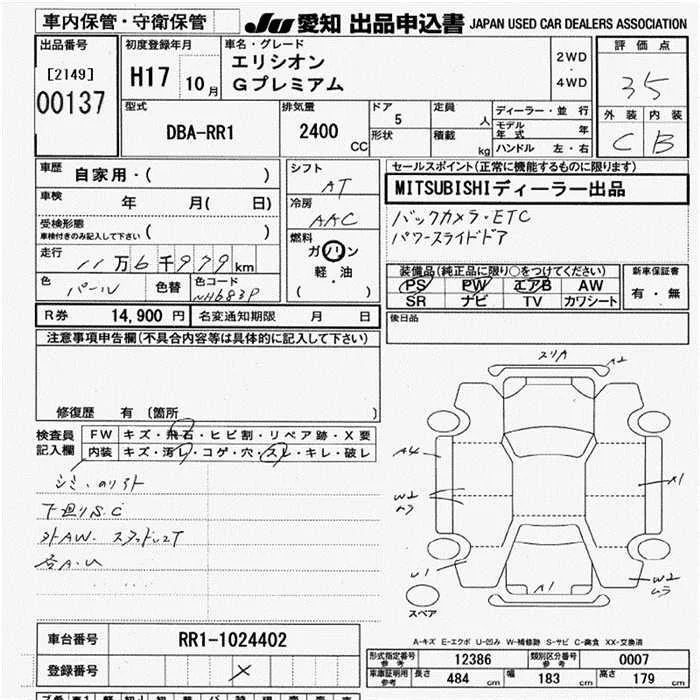 車内保管・守衛保管
JU 愛知 出品申込書 JAPAN USED CAR DEALERS ASSOCIATION
出品番号
[2149]
00137
初度登録年月
H17 10月
車名・グレード
エリシオン
Gプレミアム
2WD
・
4WD
評価点
35
外装 内装
C B
型式
DBA-RR1
排気量
2400 CC
ドア
5
形状
定員
人
積載
kg
ディーラー・並行
モデル年式 年
ハンドル 左・右
車歴
自家用・( )
車検
年 月( 日)
受検形態
車検付きのみ記入して下さい ( )
走行
11万6千979km
色
パール
色替
色コード
NH683P
シフト
AT
冷房
AAC
燃料
ガソリン
軽・油
( )
セールスポイント(正常に機能するものに限ります)
MITSUBISHIディーラー出品
バックカメラ・ETC
パワースライドドア
装備品(純正品に限り○をつけてください)
PS PW エアB AW
SR ナビ TV カワシート
新車保証書
有・無
R券 14,900円 名変通知期限 月 日
後日品
注意事項申告欄(不具合内容等は具体的に記入して下さい)
修復歴 有 〔箇所 〕
検査員記入欄
FW キズ・飛石・ヒビ割・リペア跡・X要
内装 キズ・汚レ・コゲ・穴・スレ・キレ・破レ
下廻りS.C
各A.U
スリA
A2
A4
W2
ムラ
U1
A1
X1
W2
ムラ
スペア
A-キズ E-エクボ U-凹み W-補修跡 S-サビ C-腐食 XX-交換済
車台番号 RR1-1024402
登録番号 X
形式指定番号 参考 12386 類別区分番号 参考 0007
車庫証明用 参考 長さ 484 cm 幅 183 cm 高さ 179 cm